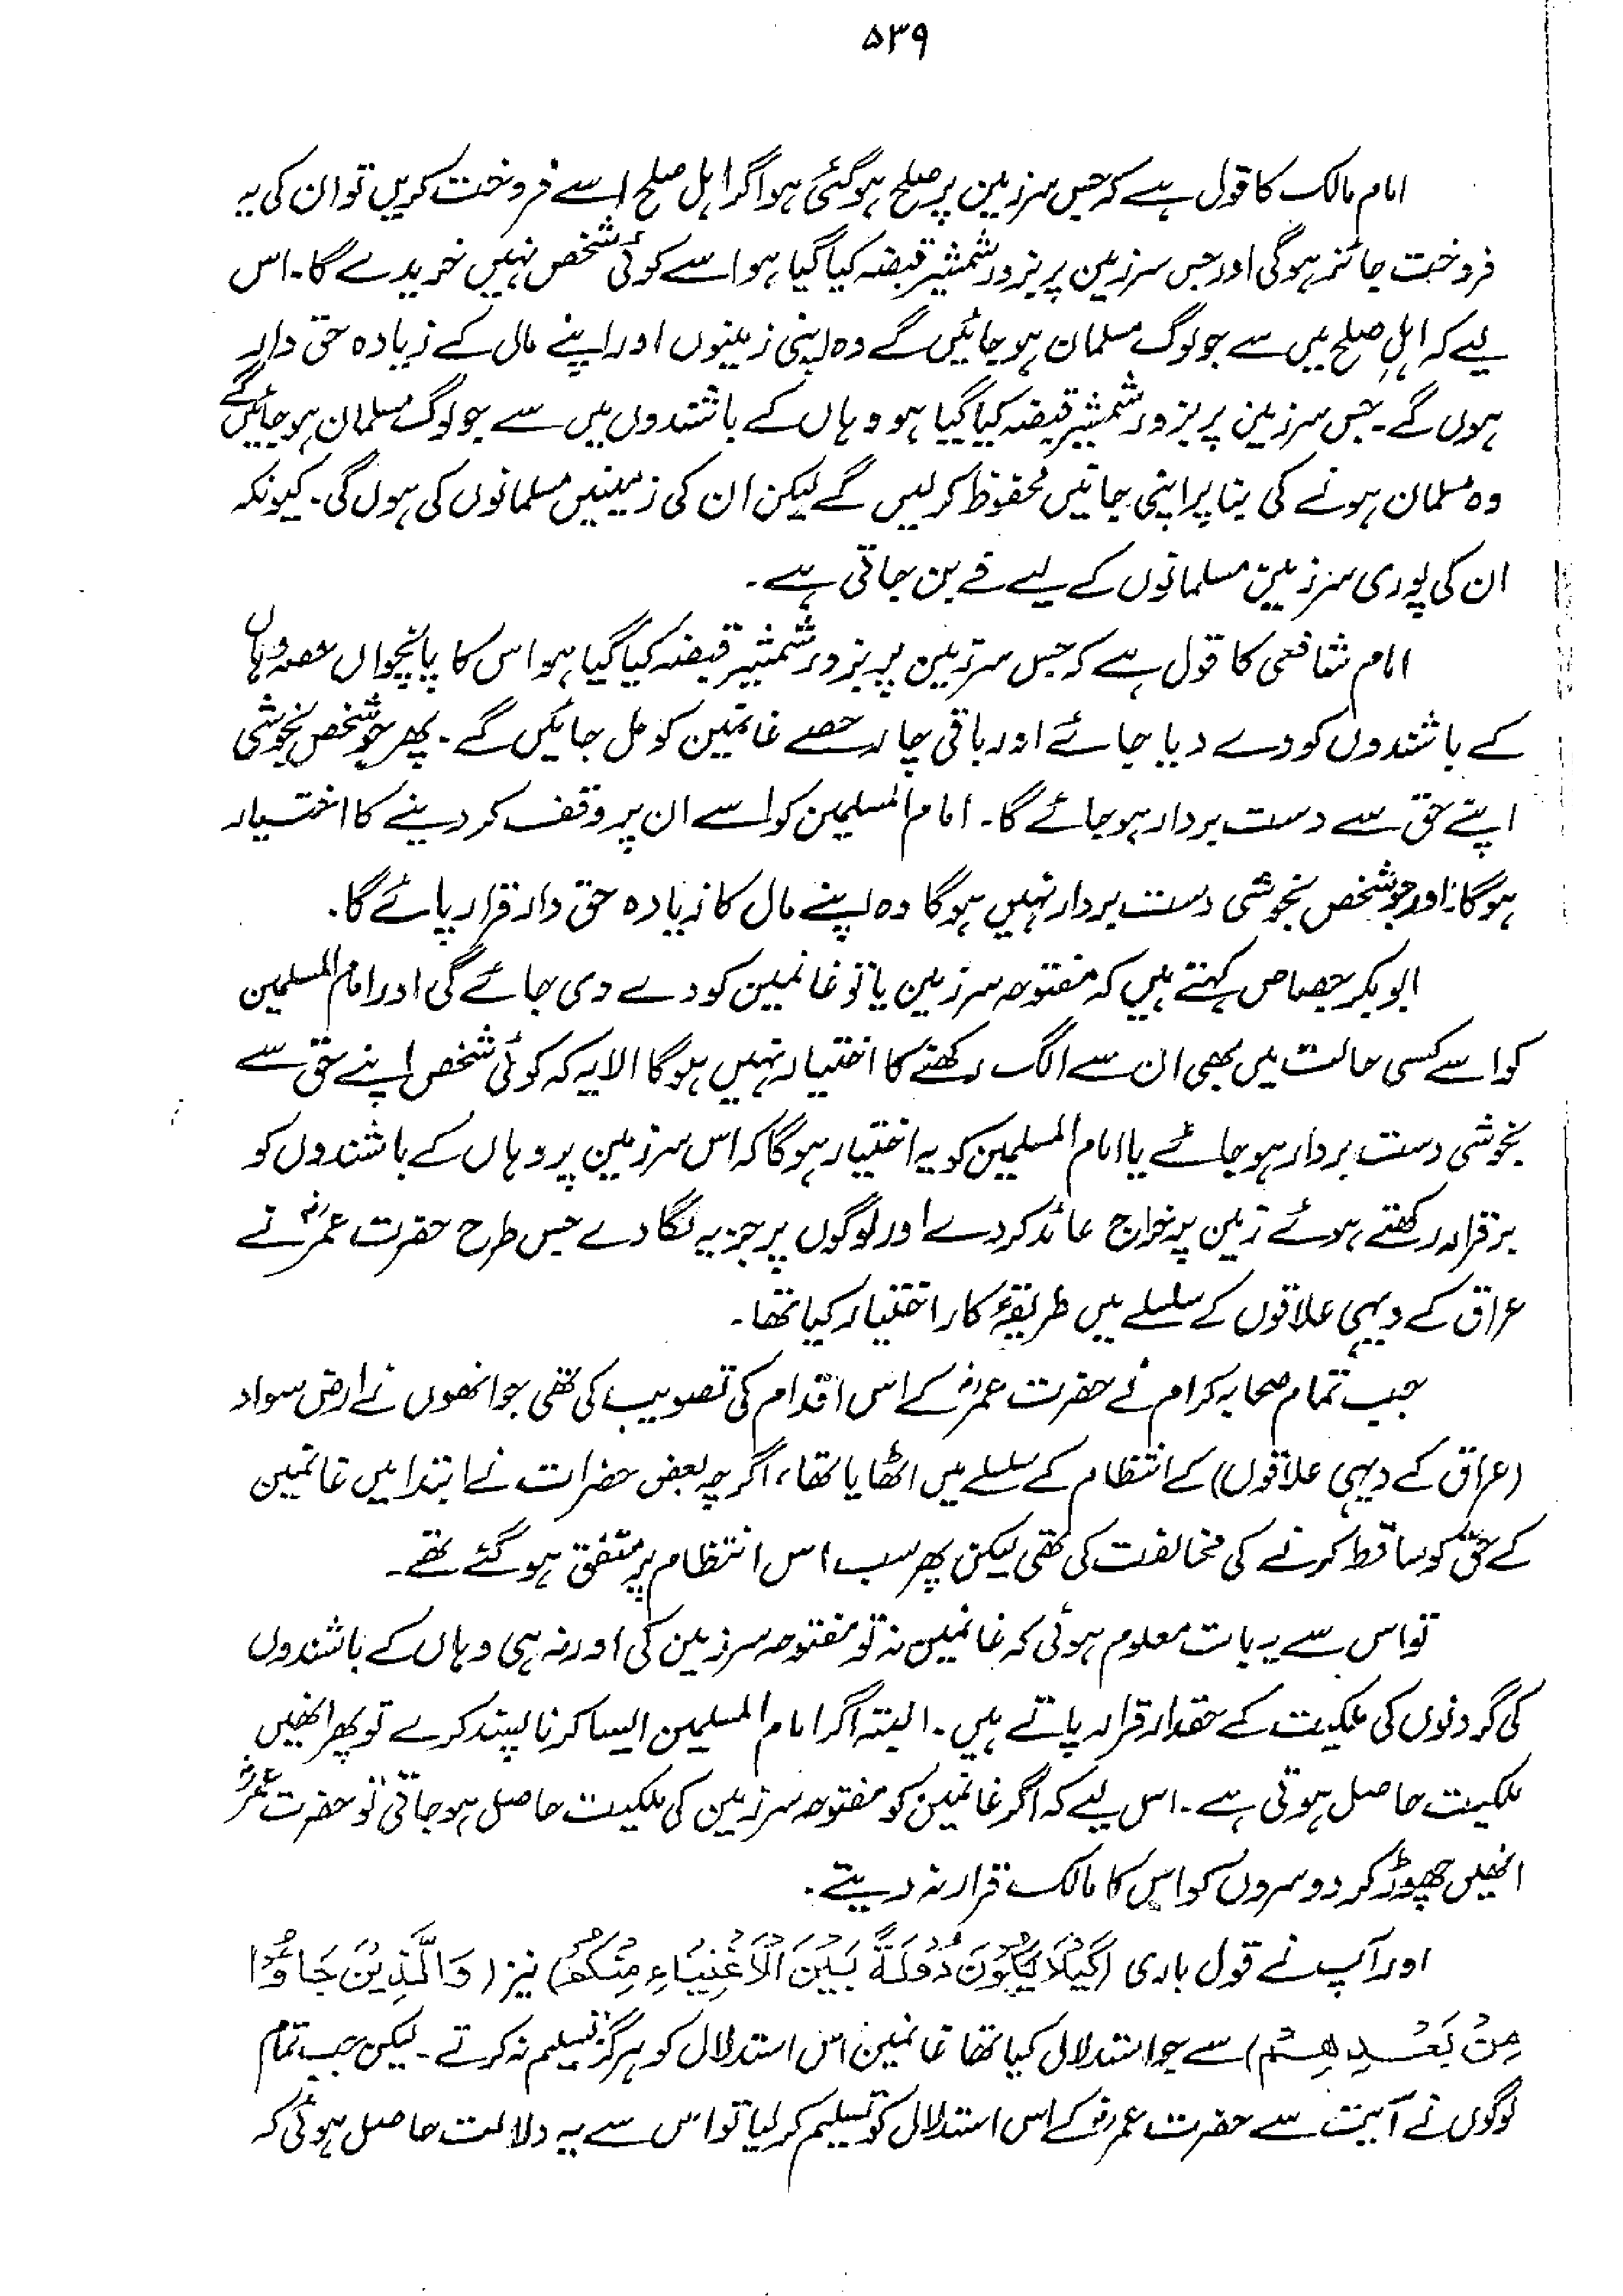 ۵۳۹
امام مالک کا قول ہے کہ جس سرزمین پر صلح ہوگئی ہو اگر اہل صلح اسے فروخت کریں تو ان کی یہ
فروخت جائز ہوگی اور جس سرزمین پر بزور شمشیر قبضہ کیا گیا ہو اسے کوئی شخص نہیں خریدے گا۔ اس
لیے کہ اہلِ صلح میں سے جو لوگ مسلمان ہو جائیں گے وہ اپنی زمینوں اور اپنے مال کے زیادہ حق دار
ہوں گے۔ جس سرزمین پر بزور شمشیر قبضہ کیا گیا ہو وہاں کے باشندوں میں سے جو لوگ مسلمان ہو جائیں گے
وہ مسلمان ہونے کی بنا پر اپنی جانیں محفوظ کرلیں گے لیکن ان کی زمینیں مسلمانوں کی ہوں گی۔ کیونکہ
ان کی پوری سرزمین مسلمانوں کے لیے فے بن جاتی ہے۔
امام شافعی کا قول ہے کہ جس سرزمین پر بزور شمشیر قبضہ کیا گیا ہو اس کا پانچواں حصہ وہاں
کے باشندوں کو دے دیا جائے اور باقی چار حصے غانمین کو مل جائیں گے۔ پھر جو شخص بخوشی
اپنے حق سے دست بردار ہو جائے گا۔ امام المسلمین کو اسے ان پر وقف کر دینے کا اختیار
ہوگا۔ اور جو شخص بخوشی دست بردار نہیں ہوگا وہ اپنے مال کا زیادہ حق دار قرار پائے گا۔
ابو بکر جصاص کہتے ہیں کہ مفتوحہ سرزمین یا تو غانمین کو دے دی جائے گی اور امام المسلمین
کو اسے کسی حالت میں بھی ان سے الگ رکھنے کا اختیار نہیں ہوگا الا یہ کہ کوئی شخص اپنے حق سے
بخوشی دست بردار ہو جائے یا امام المسلمین کو یہ اختیار ہوگا کہ اس سرزمین پر وہاں کے باشندوں کو
برقرار رکھتے ہوئے زمین پر خراج عائد کر دے اور لوگوں پر جزیہ لگا دے جس طرح حضرت عمرؓ نے
عراق کے دیہی علاقوں کے سلسلے میں طریقۂ کار اختیار کیا تھا۔
جب تمام صحابہ کرام نے حضرت عمرؓ کے اس اقدام کی تصویب کی تھی جو انھوں نے ارض سواد
(عراق کے دیہی علاقوں) کے انتظام کے سلسلے میں اٹھایا تھا، اگرچہ بعض حضرات نے ابتدا میں غانمین
کے حق کو ساقط کرنے کی مخالفت کی تھی لیکن پھر سب اس انتظام پر متفق ہو گئے تھے۔
تو اس سے یہ بات معلوم ہوئی کہ غانمین نہ تو مفتوحہ سرزمین کی اور نہ ہی وہاں کے باشندوں
کی گردنوں کی ملکیت کے حقدار قرار پاتے ہیں۔ البتہ اگر امام المسلمین ایسا کرنا پسند کرے تو پھر انھیں
ملکیت حاصل ہوتی ہے۔ اس لیے کہ اگر غانمین کو مفتوحہ سرزمین کی ملکیت حاصل ہو جاتی تو حضرت عمرؓ
انھیں چھوڑ کر دوسروں کو اس کا مالک قرار نہ دیتے۔
اور آپ نے قول باری (كَيْلَا يَكُوْنَ دُوْلَةً بَيْنَ الْاَغْنِيَاءِ مِنْكُمْ) نیز (وَالَّذِيْنَ جَاءُوْا
مِنْ بَعْدِهِمْ) سے جو استدلال کیا تھا غانمین اس استدلال کو ہرگز تسلیم نہ کرتے۔ لیکن جب تمام
لوگوں نے آیت سے حضرت عمرؓ کے اس استدلال کو تسلیم کر لیا تو اس سے یہ دلالت حاصل ہوئی کہ